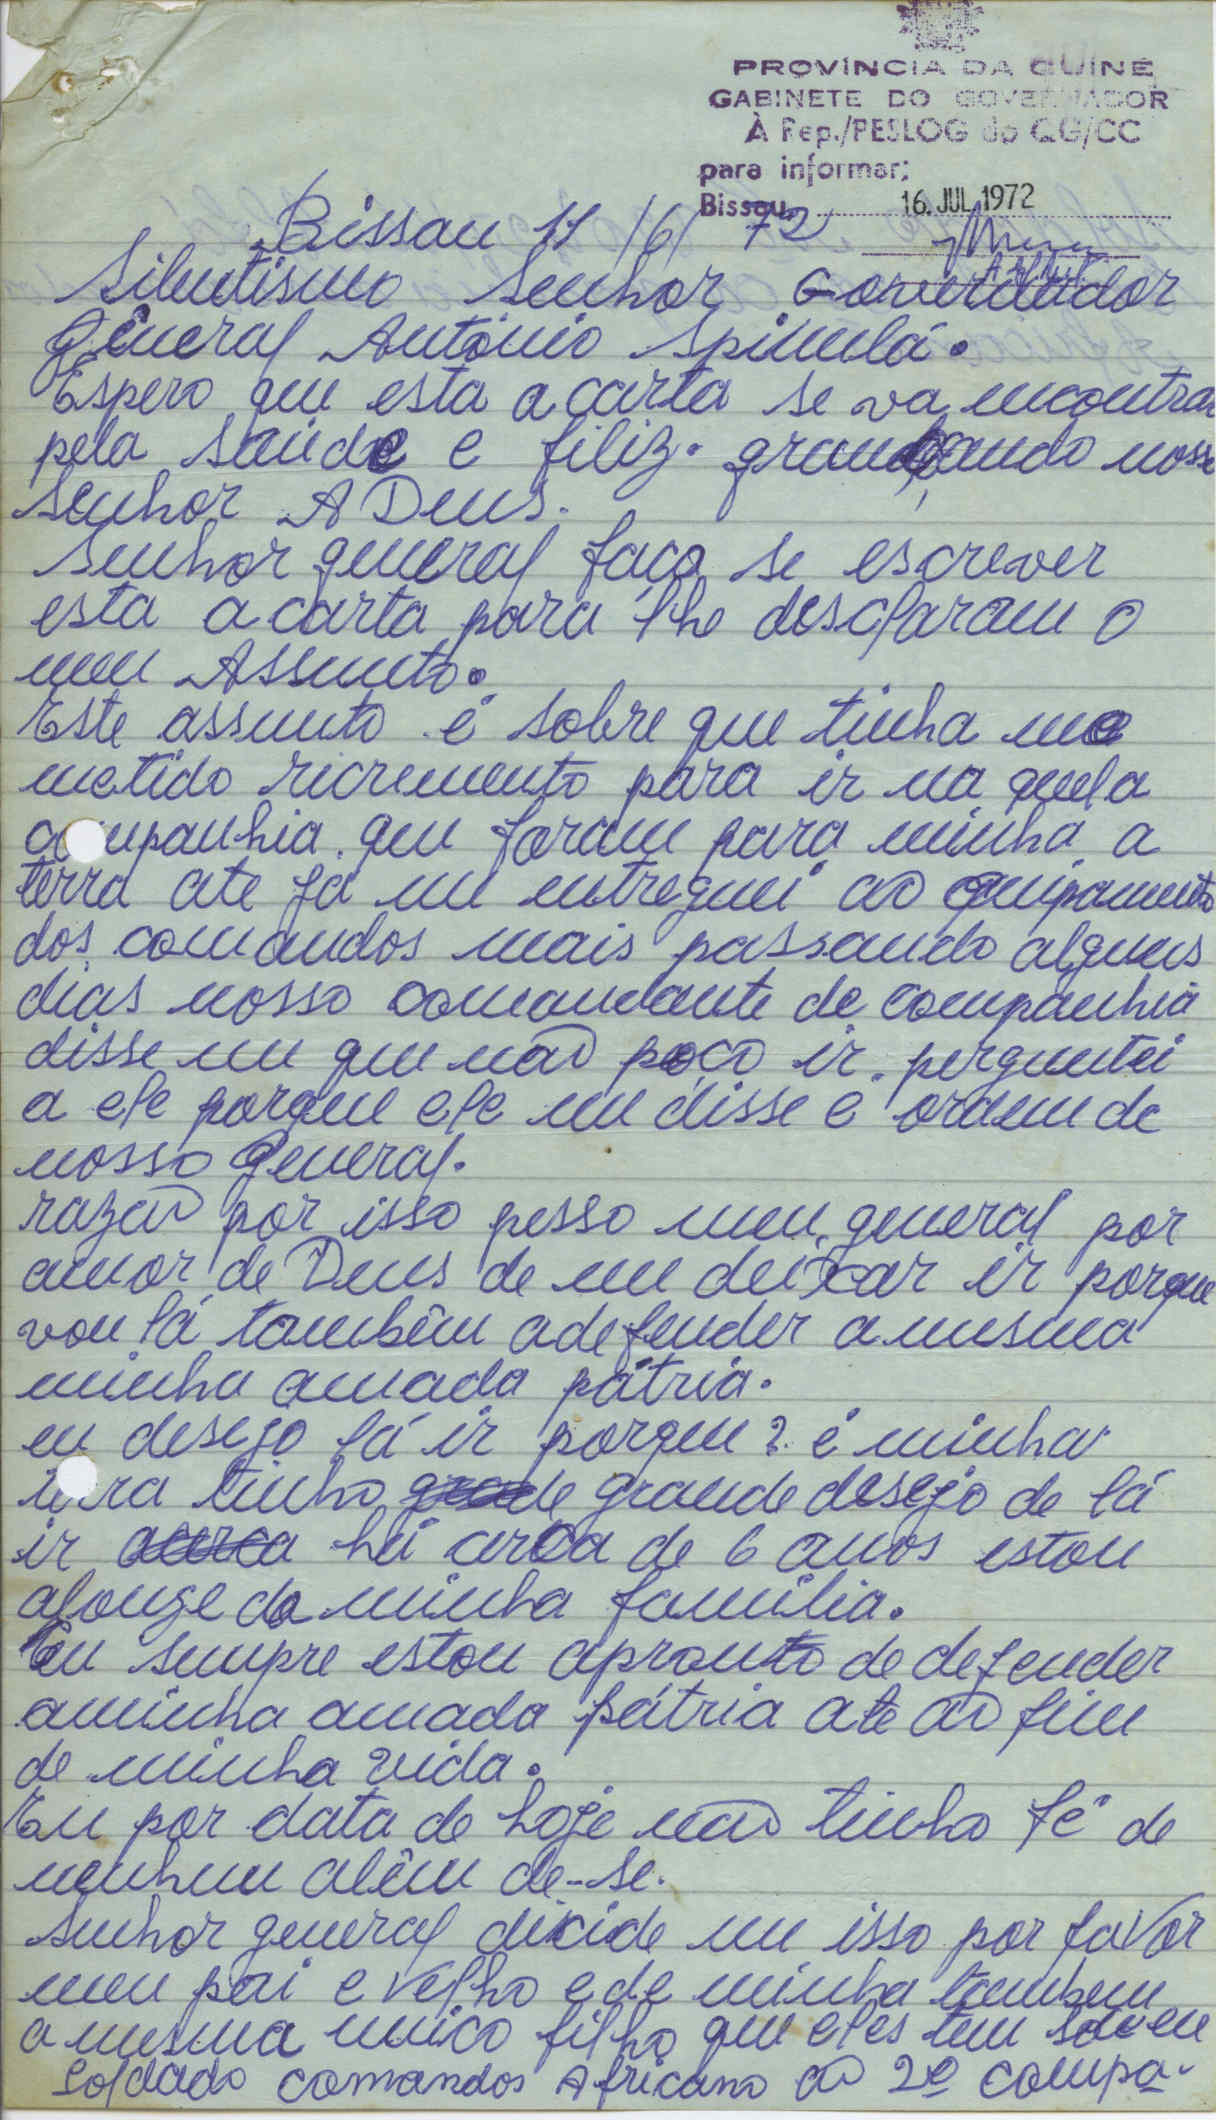 PROVÍNCIA DA GUINÉ
GABINETE DO GOVERNADOR
À Rep./PESLOG do QG/CC
para informar:
Bissau, 16. JUL 1972
Bissau 11/6/72
Silutismo Senhor Governdador
General António Spinulá.
Espero que esta a carta se va encontrar
pela saúde e filiz. grandeando nosso
Senhor A Deus.
Senhor general faço se escrever
esta a carta para lhe desclaram o
meu Assunto.
Este assunto é sobre que tinha me
metido ricremento para ir na quela
companhia que foram para minha a
terra ate já me entreguei ao equipamento
dos comandos mais passando alguns
dias nosso comandante de companhia
disse me que não poço ir. perguntei
a ele porque ele me disse e ordem de
nosso General.
razão por isso pesso meu general por
amor de Deus de me deixar ir porque
vou lá também adefender amesma
minha amada pátria.
eu desejo lá ir porque? é minha
terra tinho grande desejo de lá
ir há cerca de 6 anos estou
alonge da minha família.
Eu sempre estou apronto de defender
aminha amada pátria até ao fim
de minha vida.
Eu por data de hoje não tinho fé de
nenhum alêm de-se.
Senhor general dicide me isso por favor
meu pai e velho e de minha tambem
a mesma unico filho que eles tem sou eu
Soldado comandos Africano da 2º compa-